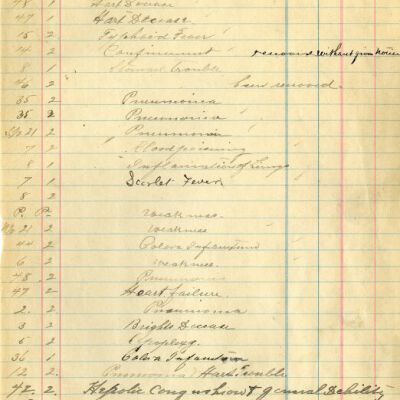 48 1 Hart Decease
47 1 Hart Decease
15 2 Typhoid Fever
14 2 Confinement removed without given notice
8 1 Stomac trouble
46 2 been removed.
55 2 Pneumonica
35 2 Pneumonica
21 2 Pneumonia
7 2 Bloodpoisoning
8 1 Inflamation of Lungs
7 1 Scarlet Fever
8 2
P. P. weakness.
21 2 weakness
44 2 Colera Infantum
6 2 weakness.
48 2 Pneumonia
47 2 Heart failure.
2. 2. Pneumonia
3 2 Brights Decease
5 2 Apoplexy.
36 1 Colera Infantum
12 2 Pneumonia Hart Trouble
42. 2. Hepatic Congestion & general Debility